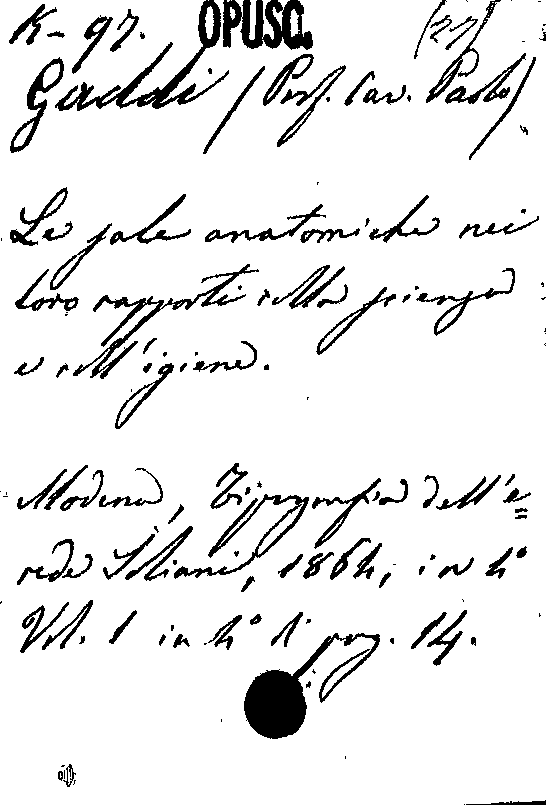 K-97. OPUSC. (27)
Gaddi (Prof. Cav. Paolo)
Le sale anatomiche nei
loro rapporti colla scienza
e coll'igiene.
Modena, Tipografia dell'e=
rede Soliani, 1864, in 4°
Vol. 1 in 4° di pag. 14.